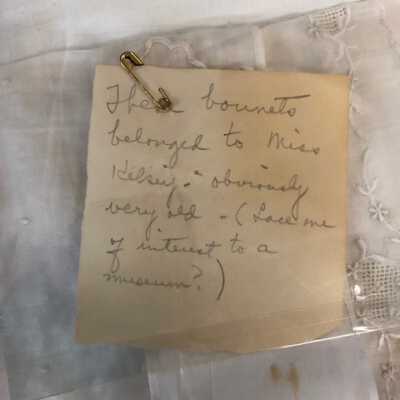 These bonnets
belonged to Miss
Kelsey - obviously
very old - (Lace
of interest to a
museum?)